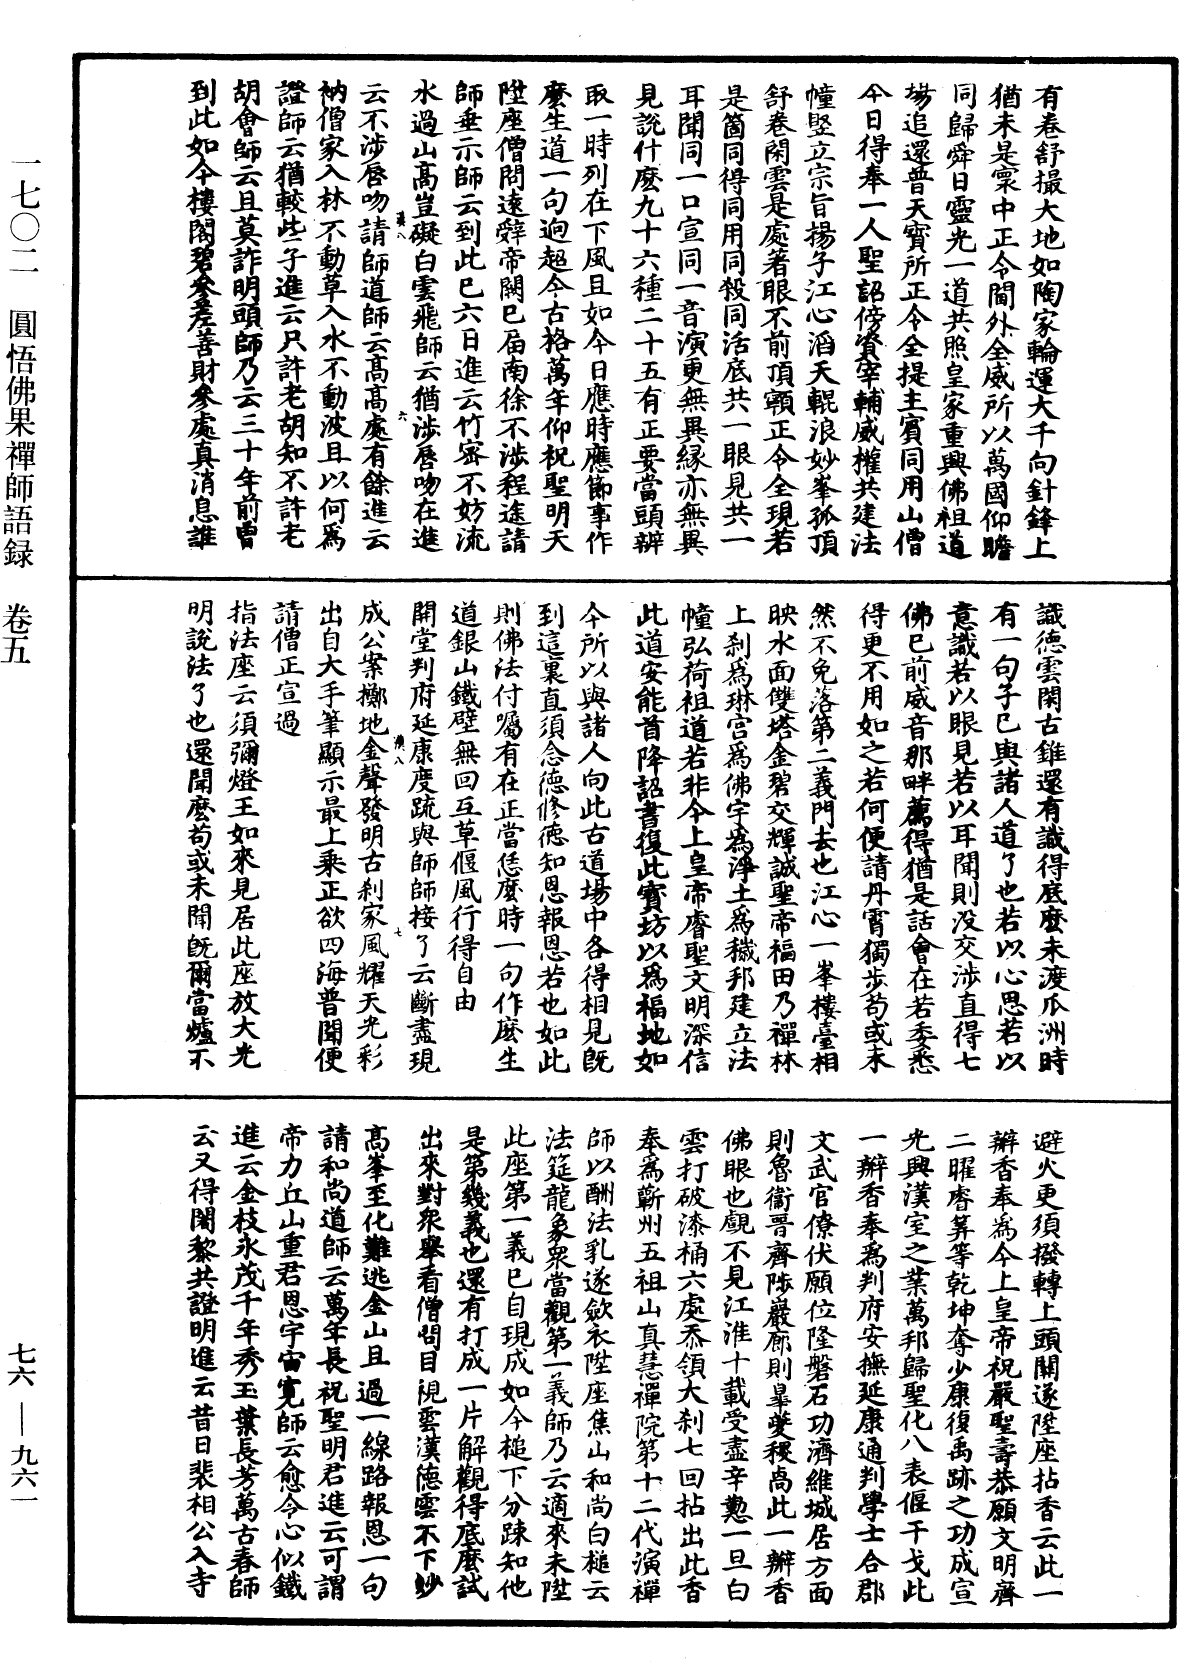 有卷舒撮大地如陶家輪運大千向針鋒上
猶未是寰中正令閫外全威所以萬國仰瞻
同歸舜日靈光一道共照皇家重興佛祖道
場追還普天寶所正令全提主賓同用山僧
今日得奉一人聖詔傍資宰輔威權共建法
幢豎立宗旨揚子江心滔天輥浪妙峯孤頂
舒卷閑雲是處著眼不前頂𩕳正令全現若
是箇同得同用同殺同活底共一眼見共一
耳聞同一口宣同一音演更無異緣亦無異
見說什麼九十六種二十五有正要當頭辨
取一時列在下風且如今日應時應節事作
麼生道一句逈超今古格萬年仰祝聖明天
陞座僧問遠辭帝闕已屆南徐不涉程途請
師垂示師云到此已六日進云竹密不妨流
水過山高豈礙白雲飛師云猶涉唇吻在進
云不涉唇吻請師道師云高高處有餘進云
衲僧家入林不動草入水不動波且以何為
證師云猶較些子進云只許老胡知不許老
胡會師云且莫詐明頭師乃云三十年前曾
到此如今樓閣碧參差善財參處真消息誰
識德雲閑古錐還有識得底麼未渡瓜洲時
有一句子已與諸人道了也若以心思若以
意識若以眼見若以耳聞則没交涉直得七
佛已前威音那畔薦得猶是話會在若委悉
得更不用如之若何便請丹霄獨步苟或未
然不免落第二義門去也江心一峯樓臺相
映水面雙塔金碧交輝誠聖帝福田乃禪林
上刹為琳宮為佛宇為淨土為穢邦建立法
幢弘荷祖道若非今上皇帝睿聖文明深信
此道安能首降詔書復此寶坊以為福地如
今所以與諸人向此古道場中各得相見既
到這裏直須念德修德知恩報恩若也如此
則佛法付囑有在正當恁麼時一句作麼生
道銀山鐵壁無回互草偃風行得自由
開堂判府延康度疏與師師接了云斷盡現
成公案擲地金聲發明古刹家風耀天光彩
出自大手筆顯示最上乘正欲四海普聞便
請僧正宣過
指法座云須彌燈王如來見居此座放大光
明說法了也還聞麼苟或未聞既爾當爐不
避火更須撥轉上頭關遂陞座拈香云此一
瓣香奉為今上皇帝祝嚴聖壽恭願文明齊
二曜睿筭等乾坤奪少康復禹跡之功成宣
光興漢室之業萬邦歸聖化八表偃干戈此
一瓣香奉為判府安撫延康通判學士合郡
文武官僚伏願位隆磐石功濟維城居方面
則魯衞晋齊陟巖廊則臯夔稷卨此一瓣香
佛眼也覷不見江淮十載受盡辛懃一旦白
雲打破漆桶六處忝領大刹七回拈出此香
奉為蘄州五祖山真慧禪院第十二代演禪
師以酬法乳遂斂衣陞座焦山和尚白槌云
法筵龍象衆當觀第一義師乃云適來未陞
此座第一義已自現成如今槌下分疎知他
是第幾義也還有打成一片解觀得底麼試
出來對衆舉看僧問目視雲漢德雲不下妙
高峯至化難逃金山且過一線路報恩一句
請和尚道師云萬年長祝聖明君進云可謂
帝力丘山重君恩宇宙寬師云愈令心似鐵
進云金枝永茂千年秀玉葉長芳萬古春師
云又得闍黎共證明進云昔日裴相公入寺
一七〇二 圓悟佛果禪師語録 卷五
七六 — 九六一